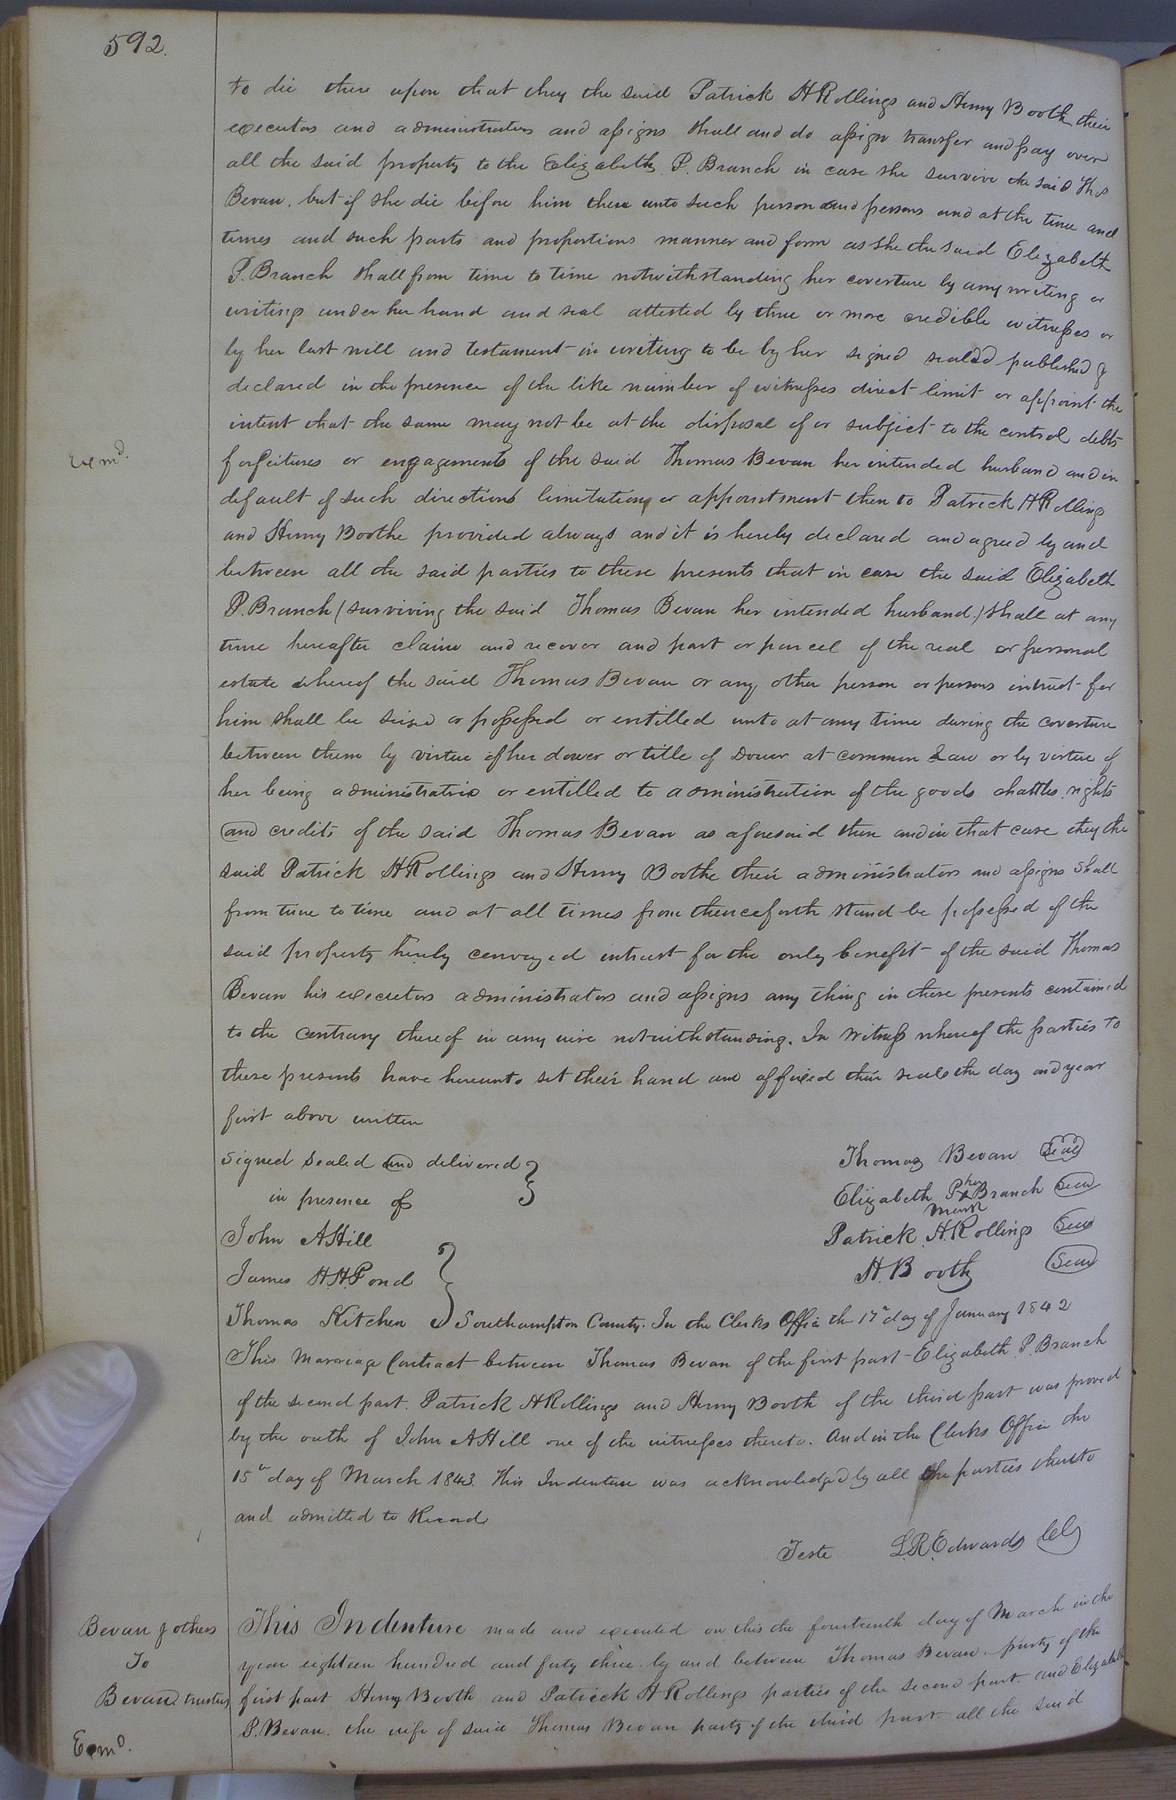 592.
to die there upon that they the said Patrick H Rollings and Henry Booth their
executors and administrators and assigns shall and do assign transfer and pay over
all the said property to the Elizabeth P. Branch in case she survive the said Thos
Bevan. but if she die before him then unto such person and persons and at the time and
times and such parts and proportions manner and form as she the said Elizabeth
P. Branch shall from time to time notwithstanding her coverture by any writing or
writings under her hand and seal attested by three or more credible witnesses or
by her last will and testament in writing to be by her signed sealed published &
declared in the presence of the like number of witnesses direct limit or appoint the
intent that the same may not be at the disposal of or subject to the control debts
Exmd.
forfeitures or engagements of the said Thomas Bevan her intended husband and in
default of such directions limitations or appointment then to Patrick H Rollings
and Henry Boothe provided always and it is hereby declared and agreed by and
between all the said parties to these presents that in case the said Elizabeth
P. Branch (surviving the said Thomas Bevan her intended husband) shall at any
time hereafter claim and recover and part or parcel of the real or personal
estate whereof the said Thomas Bevan or any other person or persons intrust for
him shall be seized or possessed or entitled unto at any time during the coverture
between them by virtue of her dower or title of Dower at common Law or by virtue of
her being administratrix or entitled to administration of the goods chattles rights
and credits of the said Thomas Bevan as aforesaid then and in that case they the
said Patrick H Rollings and Henry Boothe their administrators and assigns shall
from time to time and at all times from thenceforth stand be possessed of the
said property hereby conveyed intrust for the only benefit of the said Thomas
Bevan his executors administrators and assigns any thing in these presents contained
to the contrary thereof in any wise notwithstanding. In Witness whereof the parties to
these presents have hereunto set their hand and affixed their seals the day and year
first above written
Signed Sealed and delivered
in presence of
John A Hill
James H.H. Pond
Thomas Kitchen
Thomas Bevan Seal
her
Elizabeth P X Branch Seal
mark
Patrick H. Rollings Seal
H. Booth Seal
Southampton County. In the Clerks Office the 17th day of January 1842
This Marriage Contract between Thomas Bevan of the first part Elizabeth P. Branch
of the second part. Patrick H Rollings and Henry Booth of the third part was proved
by the oath of John A Hill one of the witnesses thereto. And in the Clerks Office the
15th day of March 1843. This Indenture was acknowledged by all the parties thereto
and admitted to Record
Teste L.R. Edwards CC
Bevan & others
To
Bevans trustees
Exmd.
This Indenture made and executed on this the fourteenth day of March in the
year eighteen hundred and forty three. by and between Thomas Bevan. party of the
first part Henry Booth and Patrick H Rollings parties of the second part and Elizabeth
P. Bevan. the wife of said Thomas Bevan party of the third part all the said